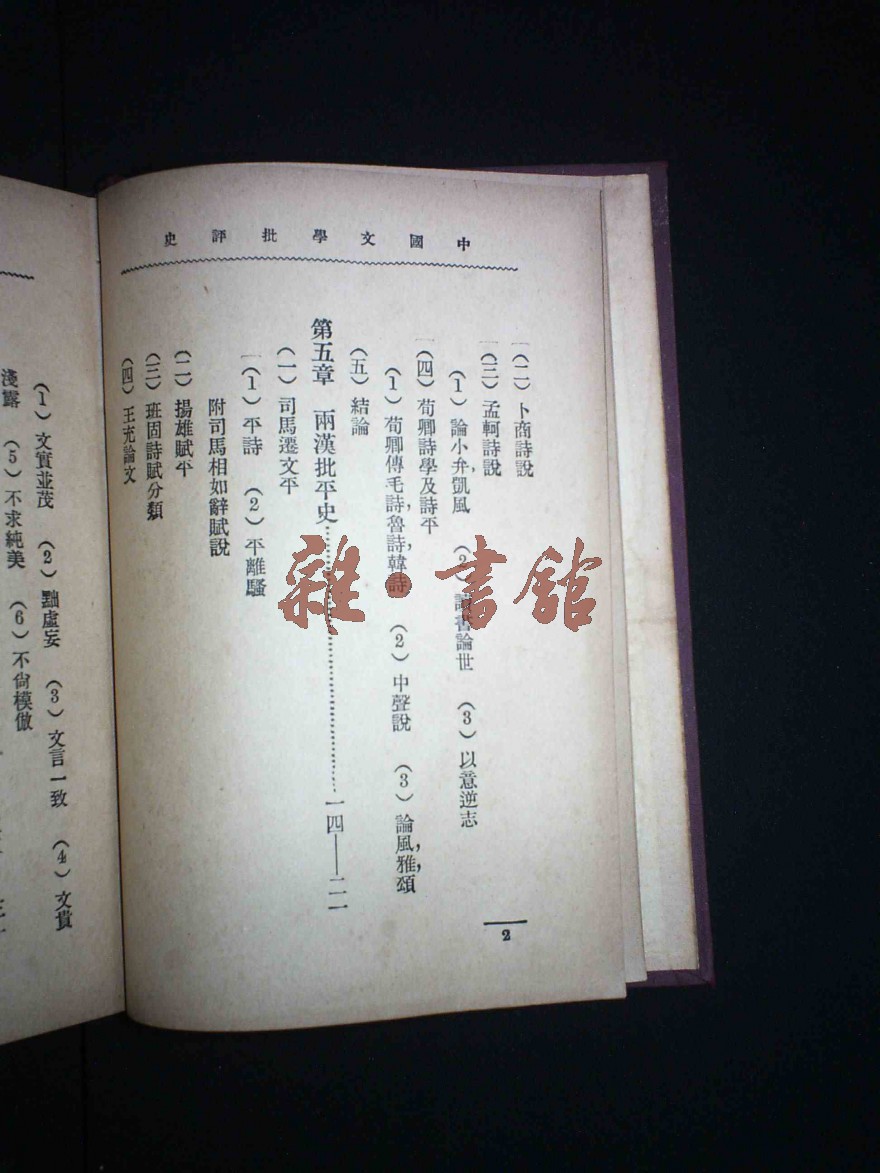 中國文學批評史
(二) 卜商詩說
(三) 孟軻詩說
(1) 論小弁,凱風 (2) 讀書論世 (3) 以意逆志
(四) 荀卿詩學及詩平
(1) 荀卿傳毛詩,魯詩,韓詩 (2) 中聲說 (3) 論風,雅,頌
(五) 結論
第五章 兩漢批平史……一四——二一
(一) 司馬遷文平
(1) 平詩 (2) 平離騷
附司馬相如辭賦說
(二) 揚雄賦平
(三) 班固詩賦分類
(四) 王充論文
2
(1) 文實並茂 (2) 黜虛妄 (3) 文言一致 (4) 文貴
淺露 (5) 不求純美 (6) 不尙模倣
雜·書館